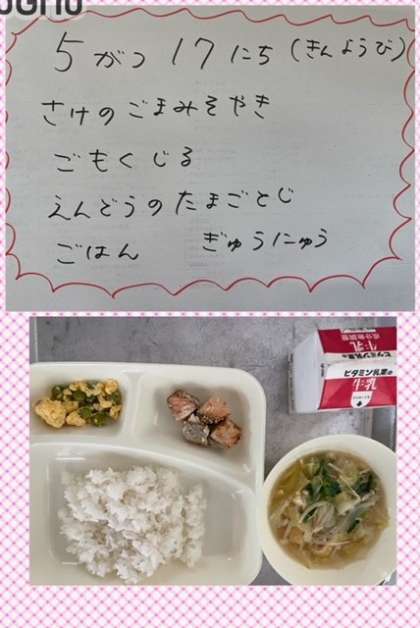 5がつ17にち(きんようび)
さけのごまみそやき
ごもくじる
えんどうのたまごとじ
ごはん ぎゅうにゅう
牛乳
ビタミン乳業の